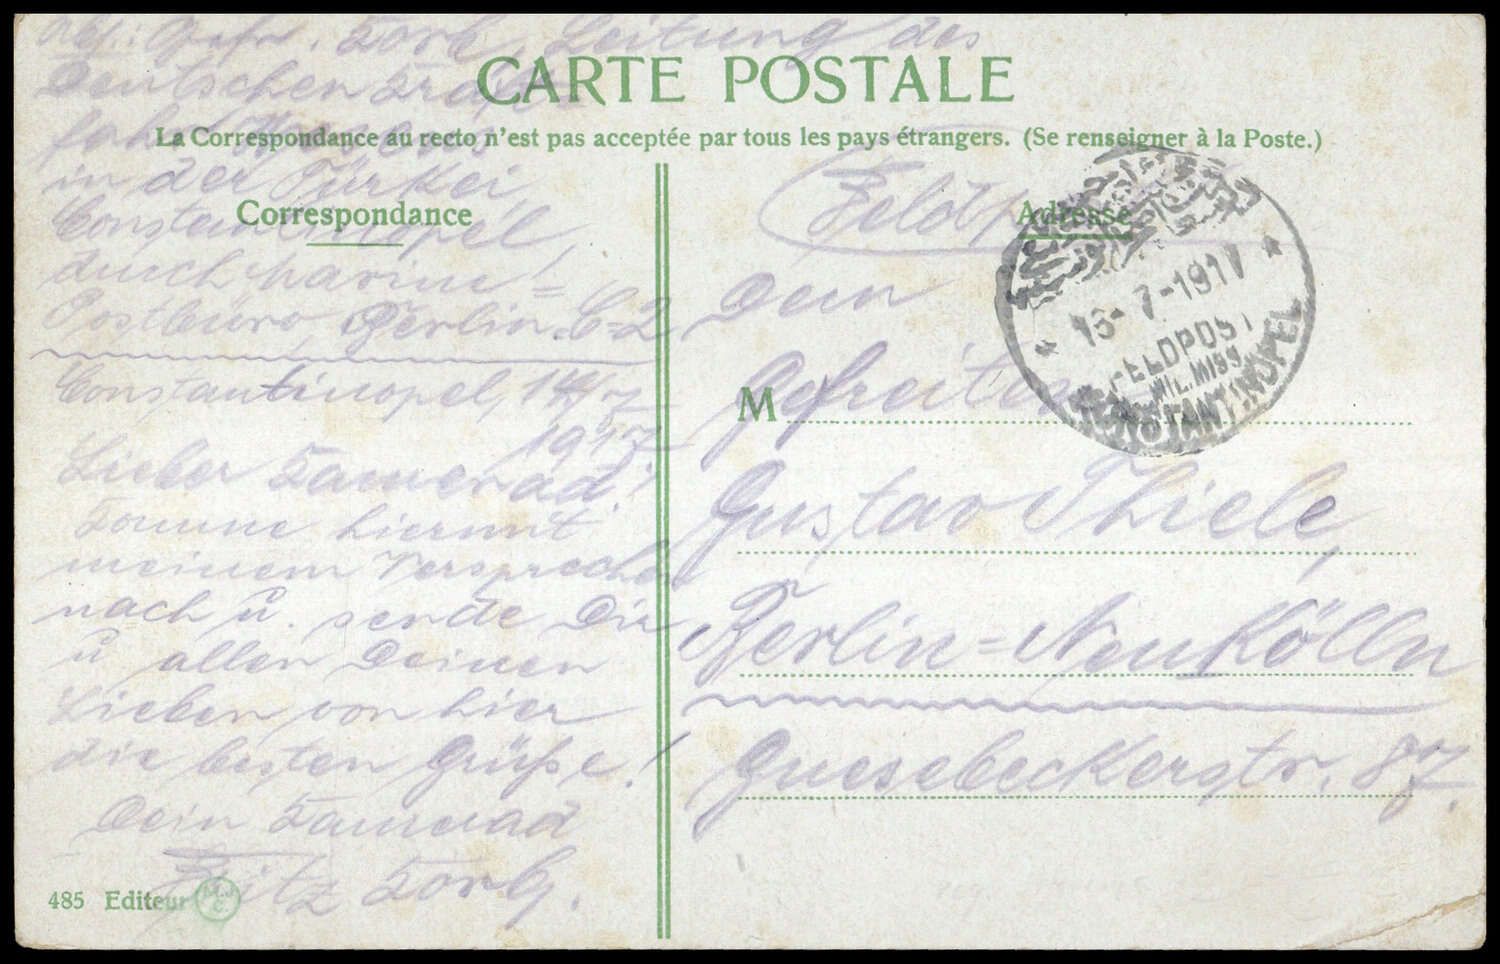 Abs.: Gefr. Korb, Leitung des
Deutschen Kraft-
fahrwesens
in der Türkei,
Constantinopel,
durch Marine=
Postbüro, Berlin. C=2
Constantinopel, 14/7
1917
Lieber Kamerad!
Komme hiermit
meinem Versprechen
nach u. sende Dir
u allen Deinen
Lieben von hier
die besten Grüße!
Dein Kamerad
Fritz Korb.
CARTE POSTALE
La Correspondance au recto n'est pas acceptée par tous les pays étrangers. (Se renseigner à la Poste.)
Correspondance
Adresse
Feldp
16-7-1917
FELDPOST
MIL. MISS.
KONSTANTINOPEL
Dem
M Gefreiten
Gustav Thiele,
Berlin=Neukölln
Guesebeckerstr. 87.
485 Editeur